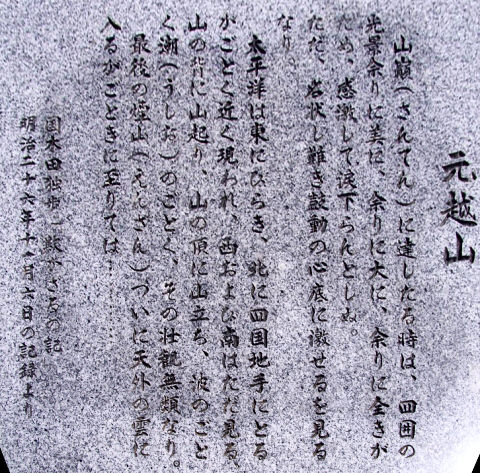 元越山
山巓(さんてん)に達したる時は、四囲の
光景余りに美に、余りに大に、余りに全きが
ため、感激して涙下らんとしぬ。
ただ、名状し難き鼓動の心底に激せるを見る
なり。
太平洋は東にひらき、北に四国地手にとる
がごとく近く現われ、西および南はただ見る、
山の背に山起り、山の頂に山立ち、波のごと
く潮(うしお)のごとく、その壮観無類なり。
最後の煙山(えんざん)ついに天外の雲に
入るがごときに至りては……
国木田独歩 欺かざるの記
明治二十六年十一月六日の記録より